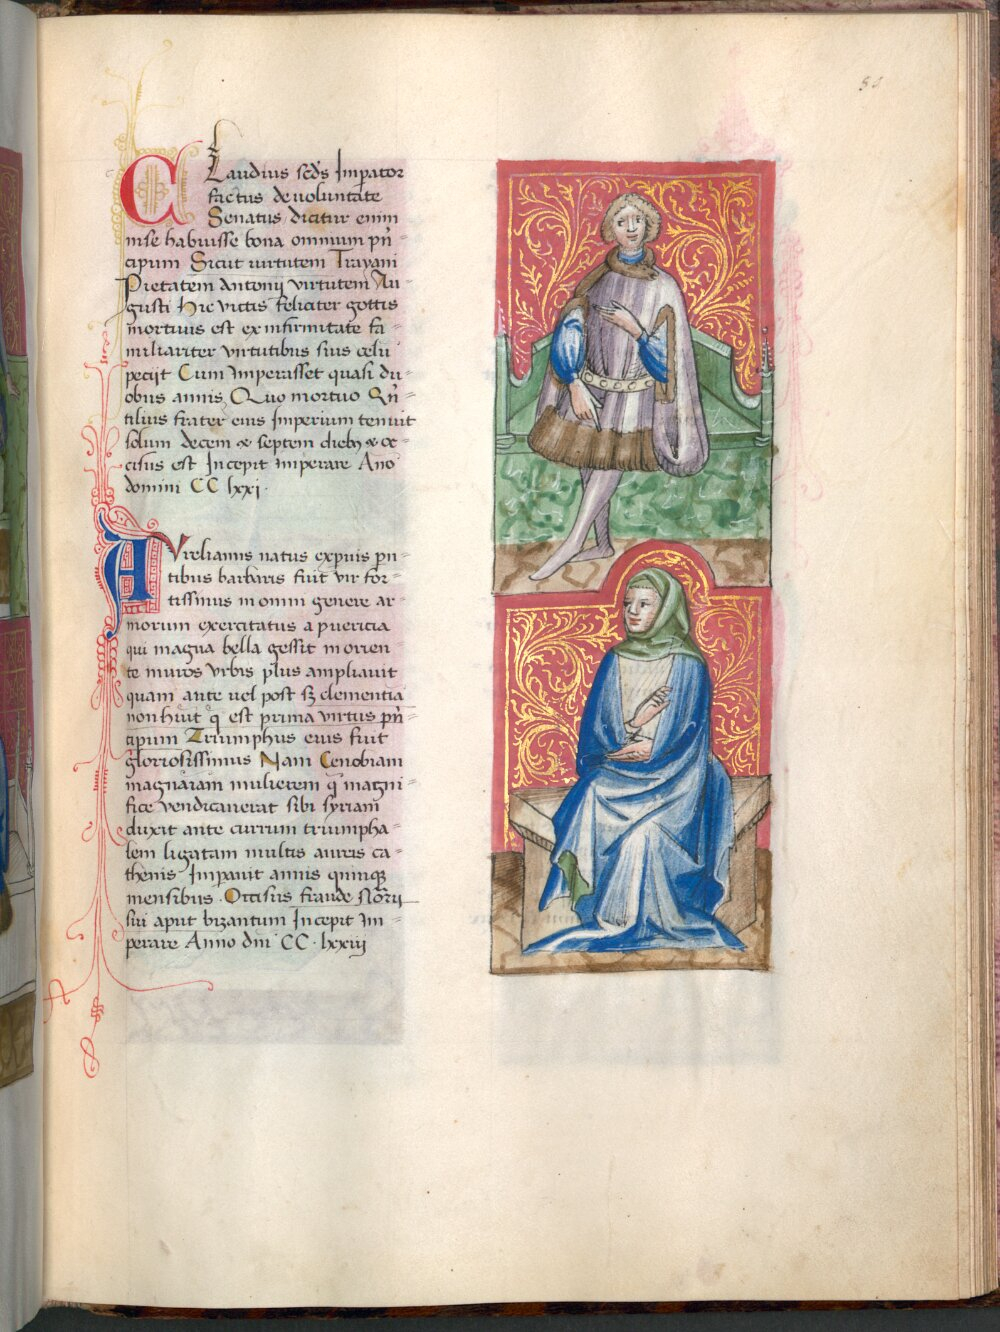 Claudius scds Impator
factus de voluntate
Senatus dicitur enim
inse habuisse bona omnium prī
cipum Sicut uirtutem Trayani
Pietatem Antonij virtutem Au
gusti Hic victis feliciter gottis
mortuus est ex infirmitate fa
miliariter virtutibus suis celū
pecijt Cum Imperasset quasi du
obus annis Quo mortuo Qn̄
tilius frater eius Imperium tenuit
solum decem & septem dieb₉ & oc
cisus est Incepit imperare Ano
domini CC lxxi.
Aurelianus natus ex puis pn
tibus barbaris fuit vir for
tissimus in omni genere ar
morum exercitatus a puericia
qui magna bella gessit in orien
te muros vrbis plus ampliauit
quam ante uel post sꝫ clementia
non huit q̄ est prima virtus prī
cipum Triumphus eius fuit
gloriosissimus Nam Cenobiam
magnaram mulierem q̄ magni
fice vendicauerat sibi syriam
duxit ante currum triumpha
lem ligatam multis aureis ca
thenis Impauit annis quinqꝫ
mensibus. Occisus fraude
sui aput bizantum Incepit Im
perare Anno dni CC. lxxiij